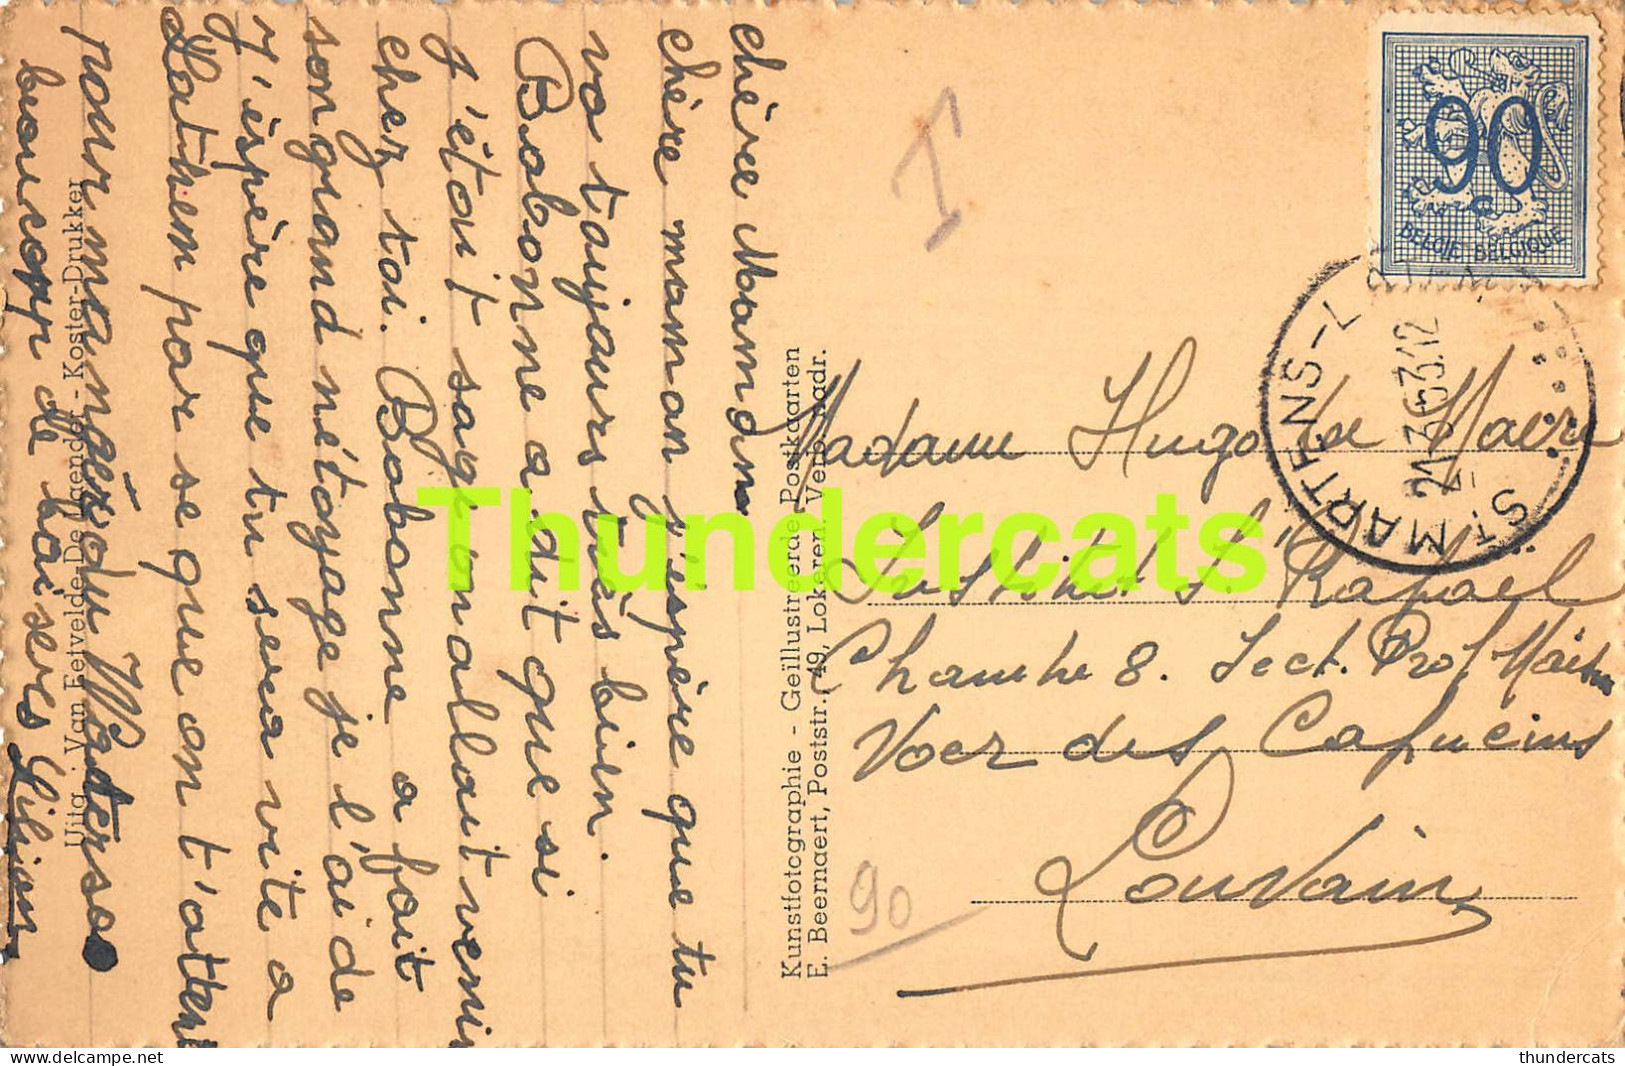 chère Maman
chère maman j'éspère que tu
va taujours très bien.
Bobonne a dit que si
j'étai sage on allait venir
chez toi. Bobonne a fait
son grand nétoyage je l'ai de
J'éspère que tu sera vite a
Latsem par se que on t'attend
pour mangér du Waterso
beucoup de baisers Lilian
Uitg. Van Eetvelde-De Jaender - Koster-Drukker
Kunstfotographie - Geïllustreerde Postkaarten
E. Beernaert, Poststr., 49, Lokeren. Verb. nadr.
T
90
90
BELGIE BELGIQUE
ST MARTENS-L
21.3.53.12
Madame Hugo De Maere
Institut St Rafael
Chambre 8. Sect. Prof
Voer des Capucins
Louvain
Thundercats
delcampe.net
thundercats